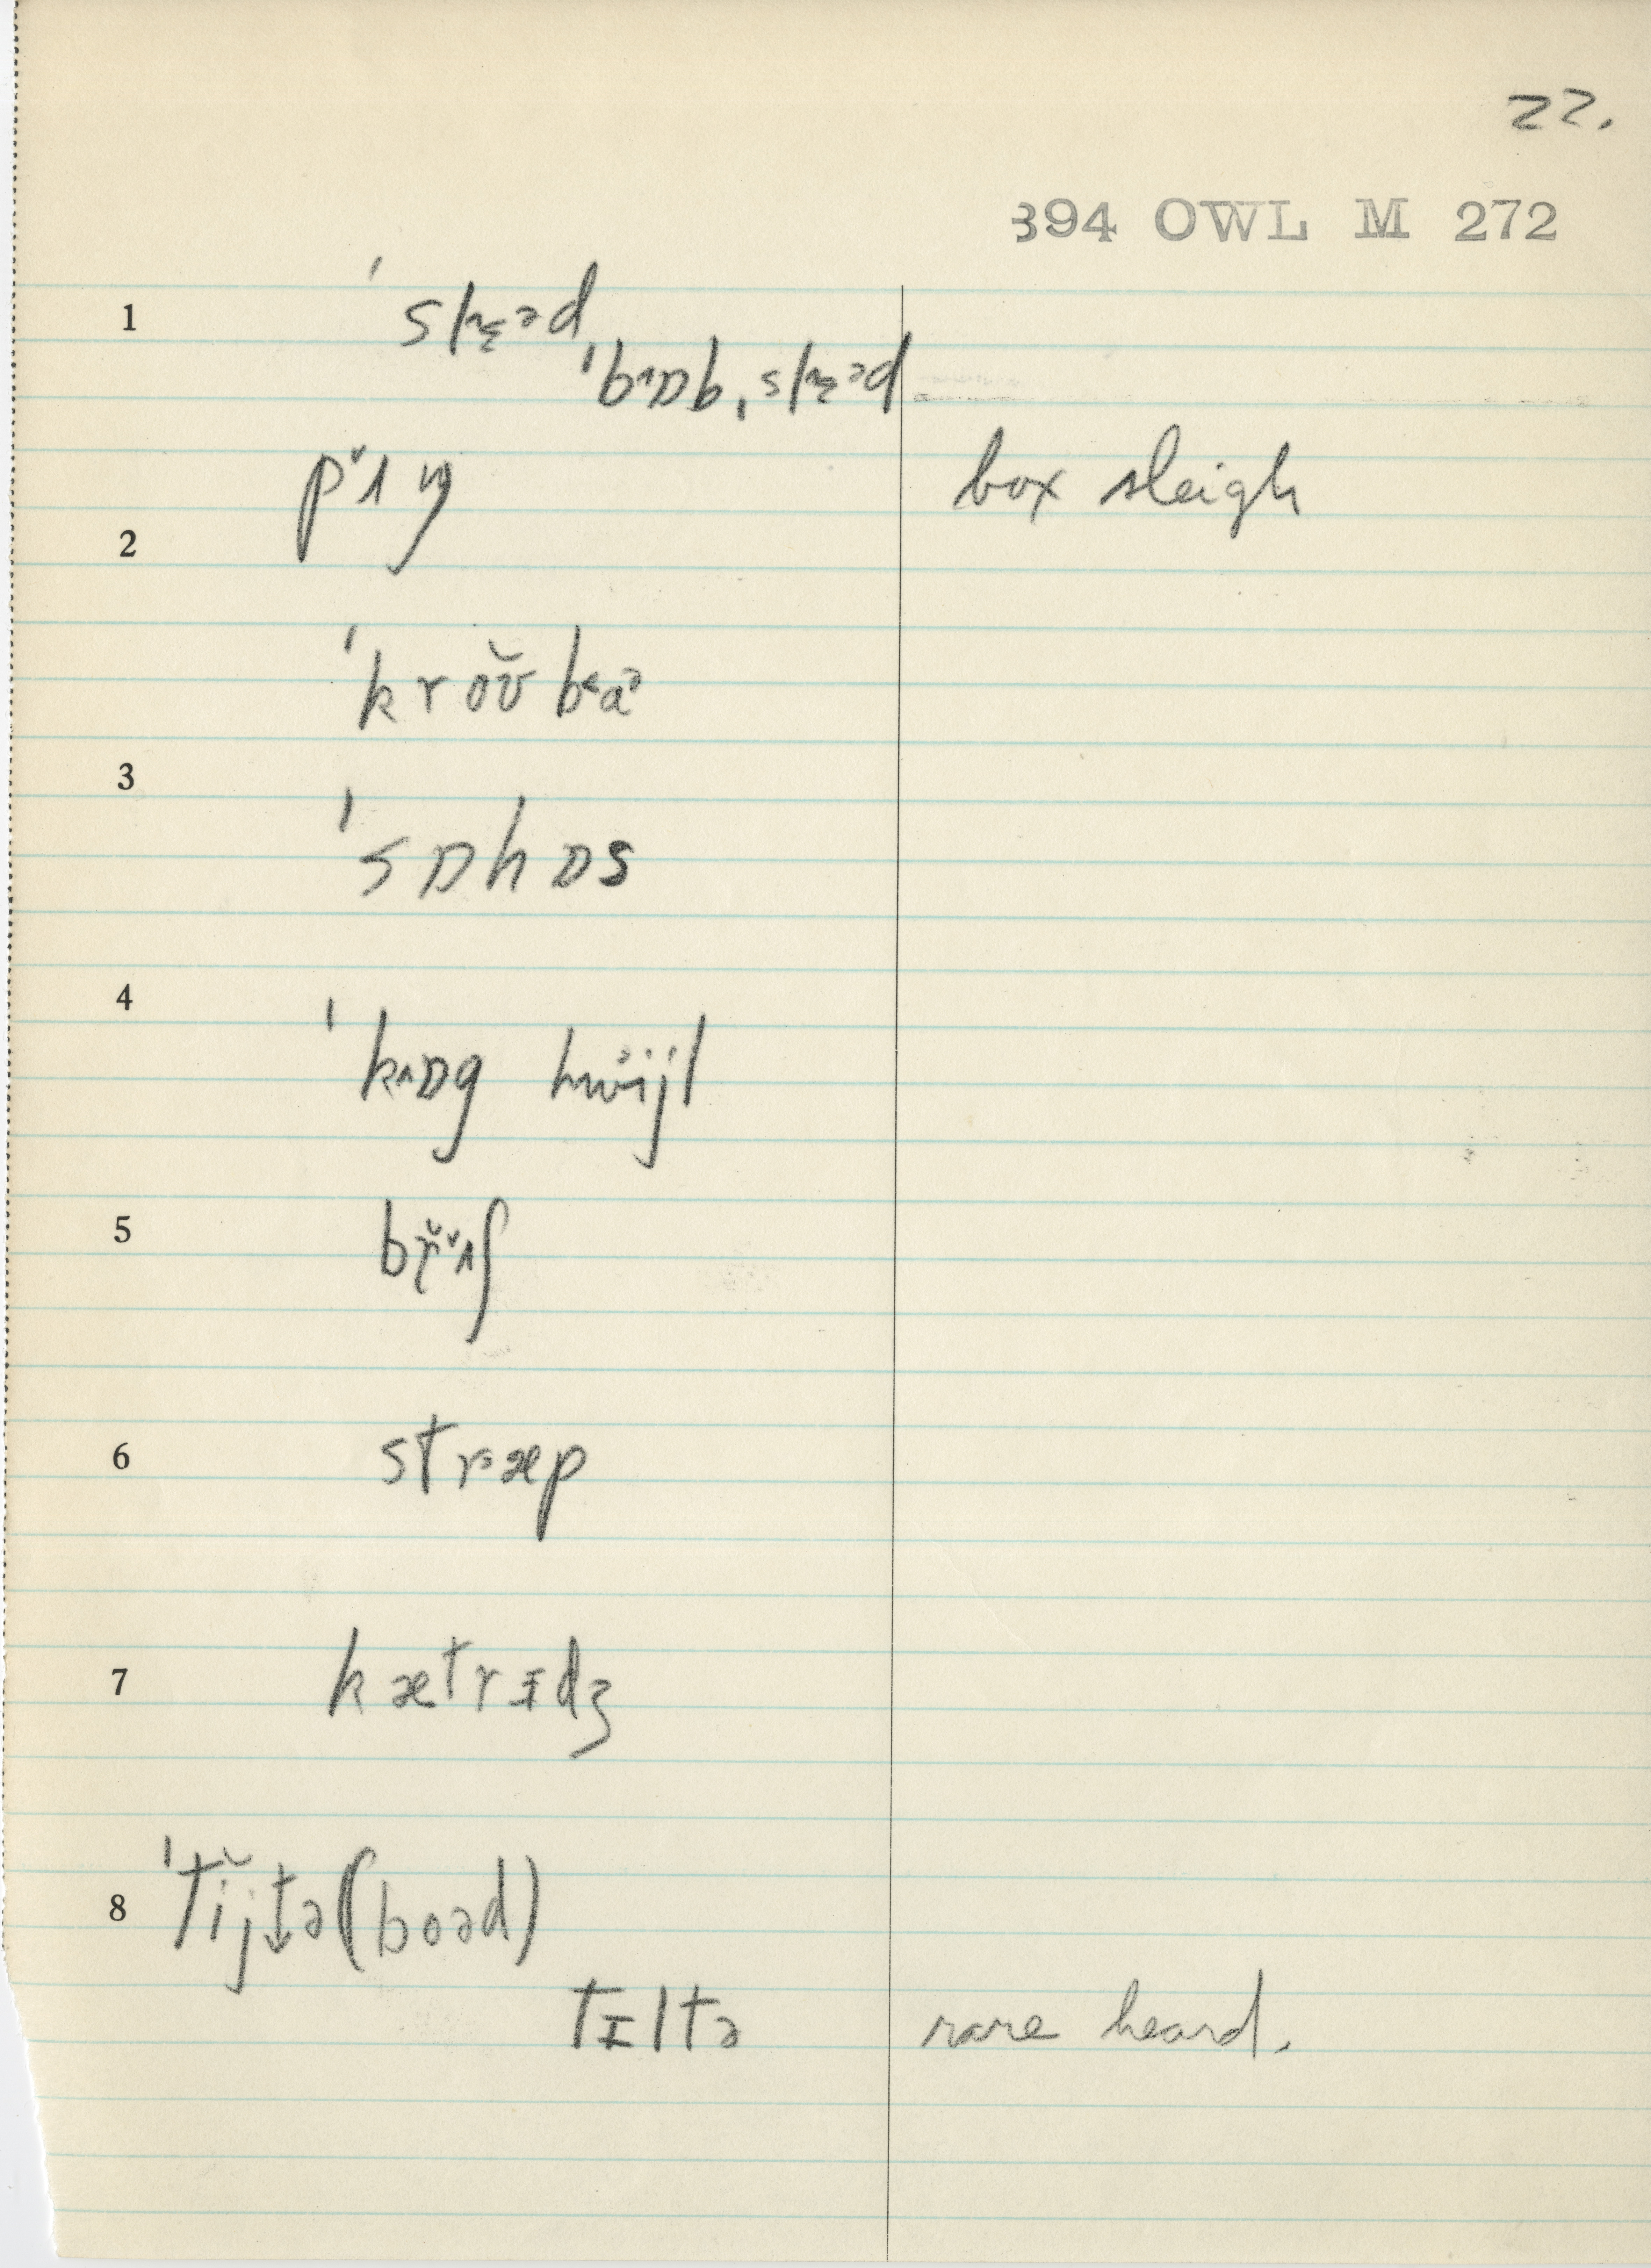 22.
394 OWL M 272
1 ˈslɛ˞əd
ˈbɒb,slɛəd
pʌŋ
box sleigh
2
ˈkroʊ̆ b˂a˒
3
ˈsɒhɒs
4
ˈk˄ɒg hwijl
5 br̆ʌʃ
6 stræp
7 kætrɪdʒ
8 ˈtĭjtə(boəd)
tɪltə rare heard.